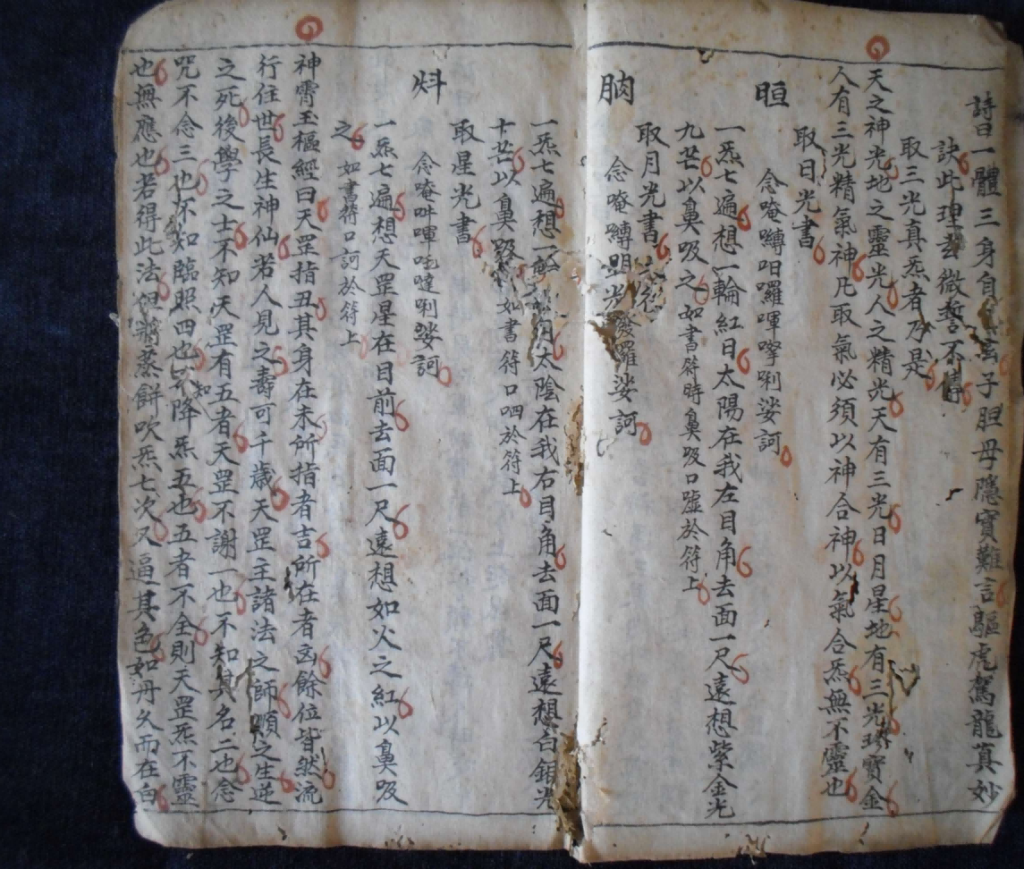 詩曰一體三身自高子胆母隱寶難言驅虎駕龍真妙
訣此理玄微誓不傳
取三光真炁者乃是
天之神光地之靈光人之精光天有三光日月星地有三光珠寶金
人有三光精氣神凡取氣必須以神合神以氣合炁無不靈也
取日光書
念唵囀囉㗸唎娑訶
晅
一炁七遍想一輪紅日太陽在我左目角去面一尺遠想紫金光
九芒以鼻吸之如書符時鼻吸口噓於符上
取月光書
念唵囀囉娑訶
朒
一炁七遍想一月太陰在我右目角去面一尺遠想白銀光
十芒以鼻吸如書符口呬於符上
取星光書
念唵吽㖇噠唎娑訶
炓
一炁七遍想天罡星在目前去面一尺遠想如火之紅以鼻吸
之如書符口訶於符上
神霄玉樞經曰天罡指丑其身在未所指者吉所在者凶餘位皆然流
行住世長生神仙若人見之壽可千歲天罡主諸法之師順之生逆
之死後學之士不知天罡有五者天罡不謝一也不知其名二也念
咒不念三也不知臨照四也不降炁五也五者不全則天罡炁不靈
也無應也若得此法但將蒸餅吹炁七次又逼其色如丹久而在白